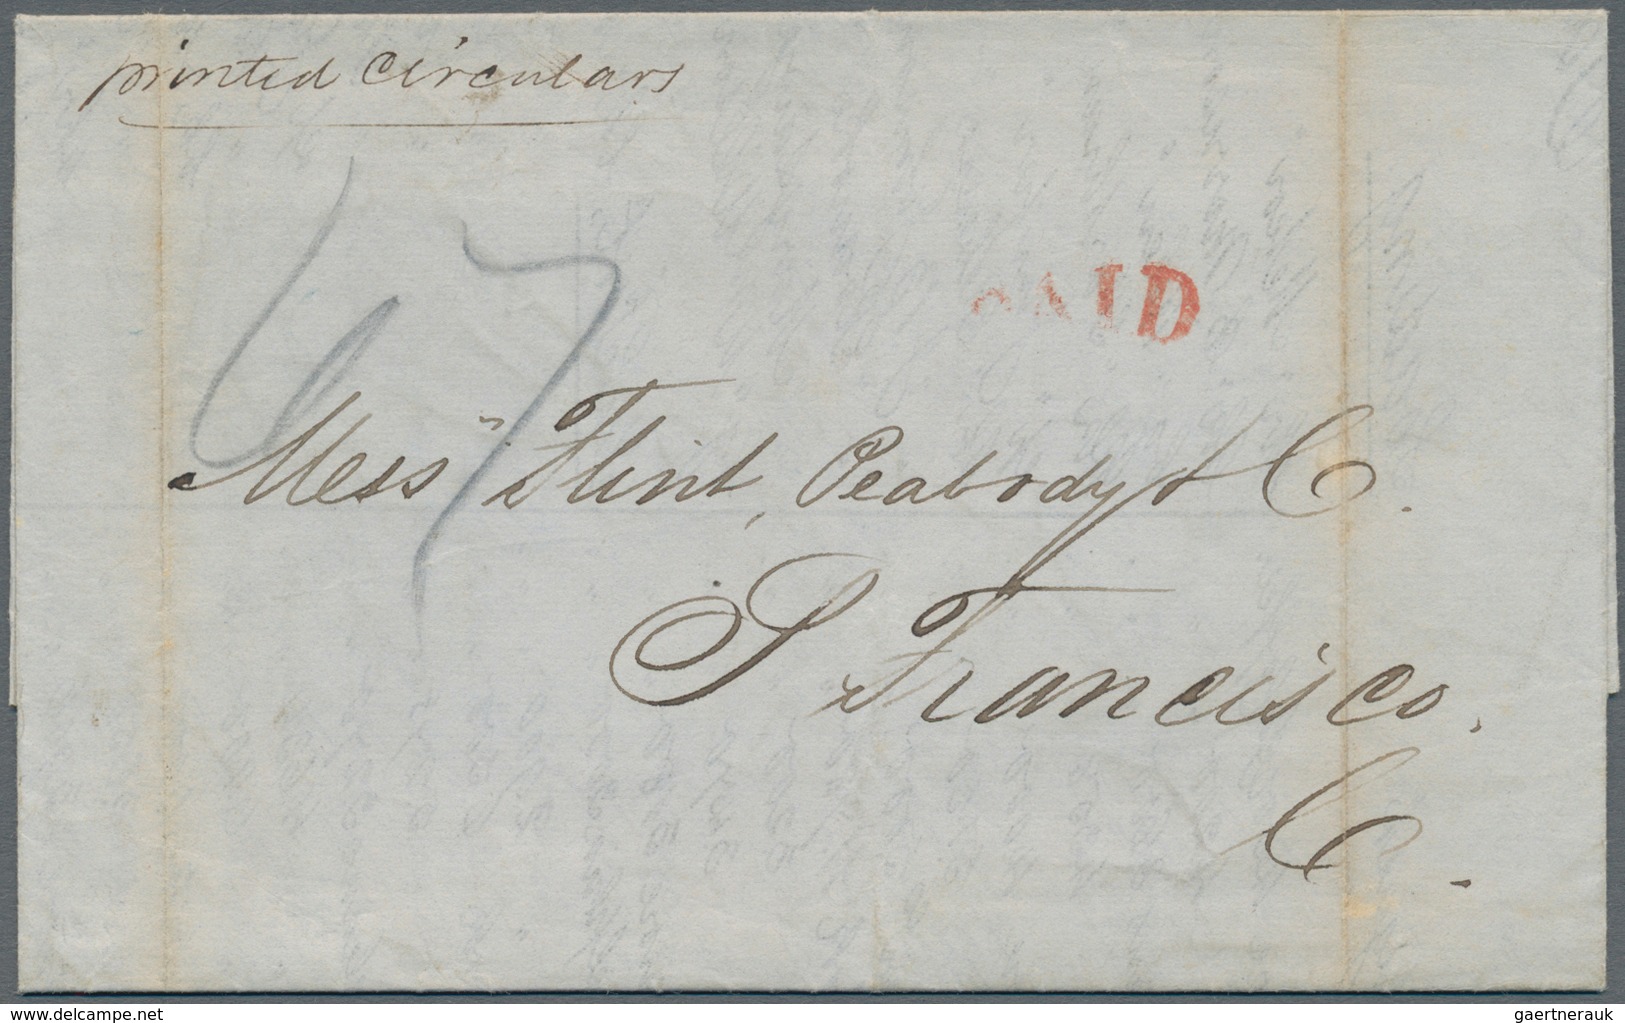 printed circulars
67
PAID
Mess" Flint, Peabody & C.
S Francisco,
C.
www.delcampe.net
gaertnerauk